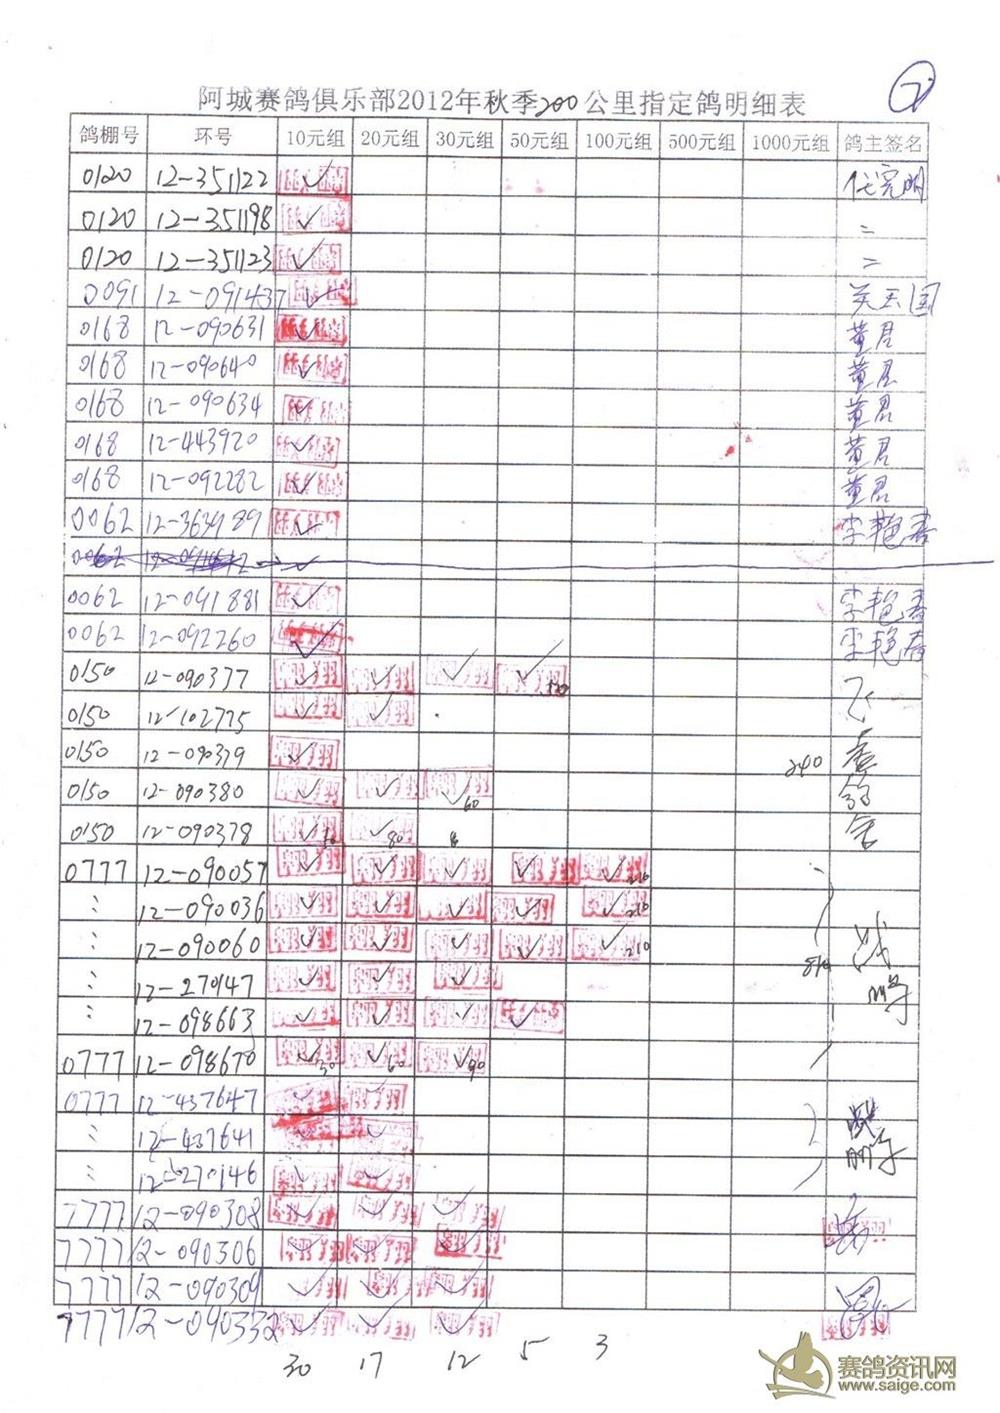 ⑦
阿城赛鸽俱乐部2012年秋季200公里指定鸽明细表
鸽棚号 环号 10元组 20元组 30元组 50元组 100元组 500元组 1000元组 鸽主签名
0120 12-351122 ✓
0120 12-351198 ✓ 〃
0120 12-351123 ✓ 〃
0091 12-091437 ✓
0168 12-090631 ✓ 董君
0168 12-090640 ✓ 董君
0168 12-090634 ✓ 董君
0168 12-443920 ✓ 董君
0168 12-092282 ✓ 董君
0062 12-363989 ✓ 李艳春
0062 ✓
0062 12-091881 ✓ 李艳春
0062 12-092260 ✓ 李艳春
0150 12-090377 ✓ ✓ ✓ ✓
0150 12-102775 ✓ ✓
0150 12-090379 ✓ 240
0150 12-090380 ✓ ✓ ✓ 60
0150 12-090378 ✓ ✓
0777 12-090057 ✓ ✓ ✓ ✓ ✓ 210
〃 12-090036 ✓ ✓ ✓ ✓ ✓ 210
〃 12-090060 ✓ ✓ ✓ ✓ ✓ 210
〃 12-270147 ✓ ✓ ✓
〃 12-098663 ✓ ✓ ✓ ✓
0777 12-098670 ✓ 30 ✓ 60 ✓ 90
0777 12-437647 ✓ ✓
〃 12-437641 ✓ ✓
〃 12-270146 ✓ ✓
7777 12-090308 ✓ ✓ ✓
7777 12-090306 ✓ ✓ ✓
7777 12-090309 ✓ ✓ ✓
7777 12-090332 ✓ ✓ ✓
30 17 12 5 3
赛鸽资讯网
www.saige.com